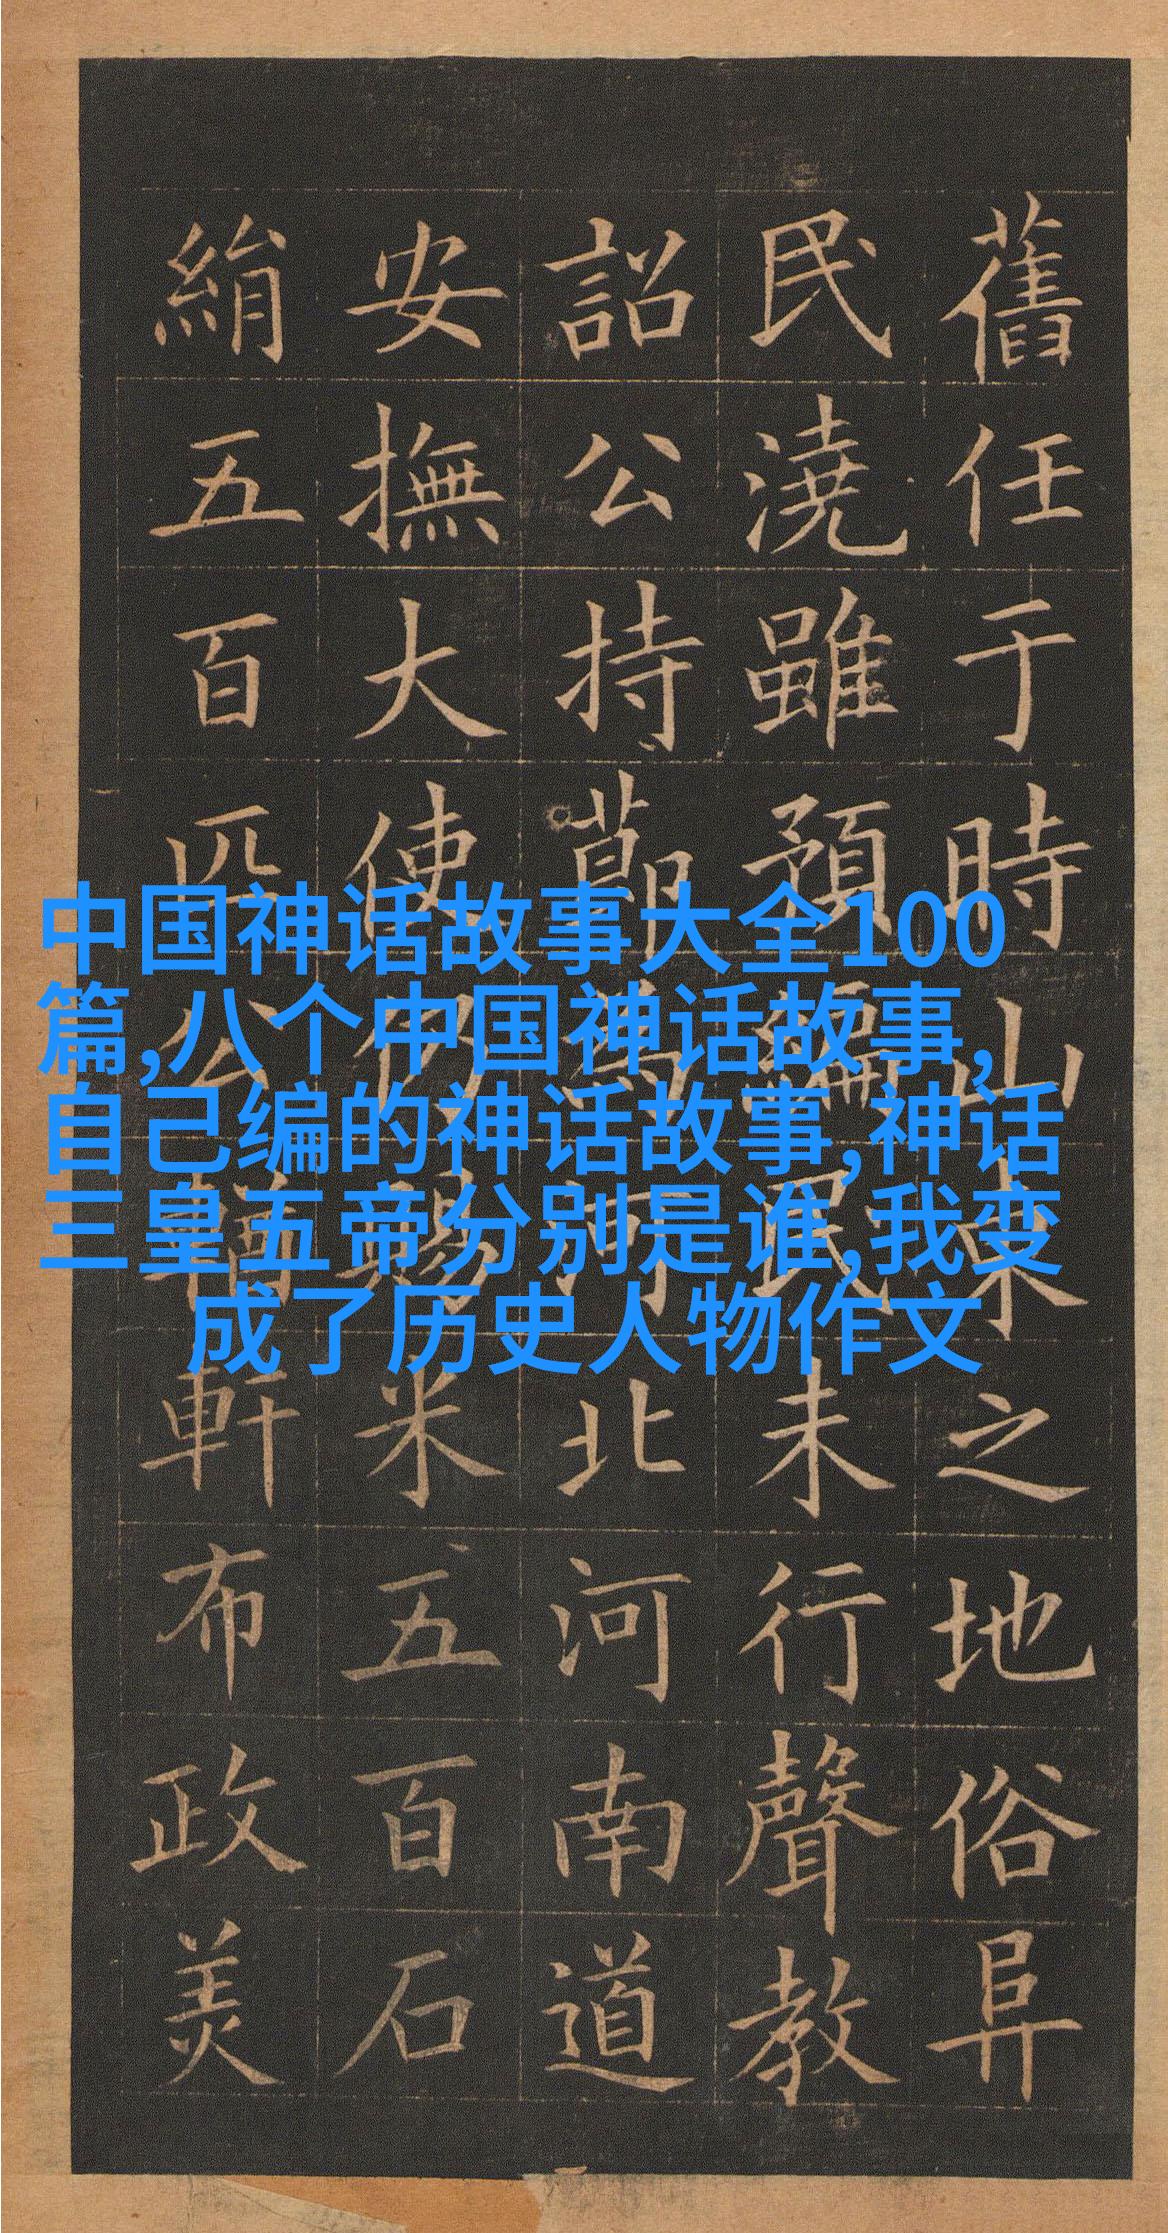 中国神话故事大全100
篇,八个中国神话故事,
自己编的神话故事,神话
三皇五帝分别是谁,我变
成了历史人物作文
舊任于時山東之地俗阜
民澆雖預編民未行聲教
詔公持節爲河北河南道
安撫大使仍賜米五百石
絹五百匹公輶軒布政美